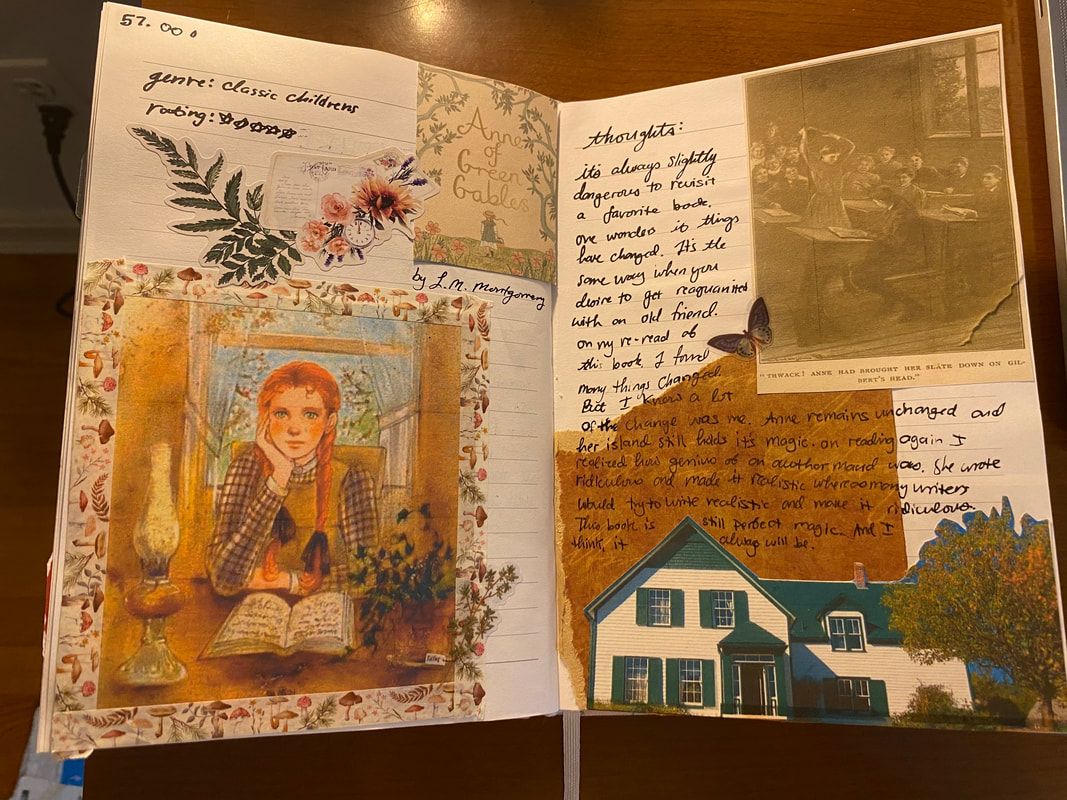 57. 00
genre: classic childrens
rating: ☆☆☆☆☆
Anne
of
Green
Gables
by L.M. Montgomery
thoughts:
it's always slightly
dangerous to revisit
a favorite book.
one wonders if things
have changed. It's the
same way when you
desire to get reaquainted
with an old friend.
on my re-read of
this book, I found
many things changed.
But I know a lot
of the change was me. Anne remains unchanged and
her island still holds it's magic. on reading again I
realized how genius of an author maud was. She wrote
ridiculous and made it realistic whereas many writers
would try to write realistic and make it ridiculous.
This book is still perfect magic. And I
think, it always will be.
"THWACK! ANNE HAD BROUGHT HER SLATE DOWN ON GIL-
BERT'S HEAD."